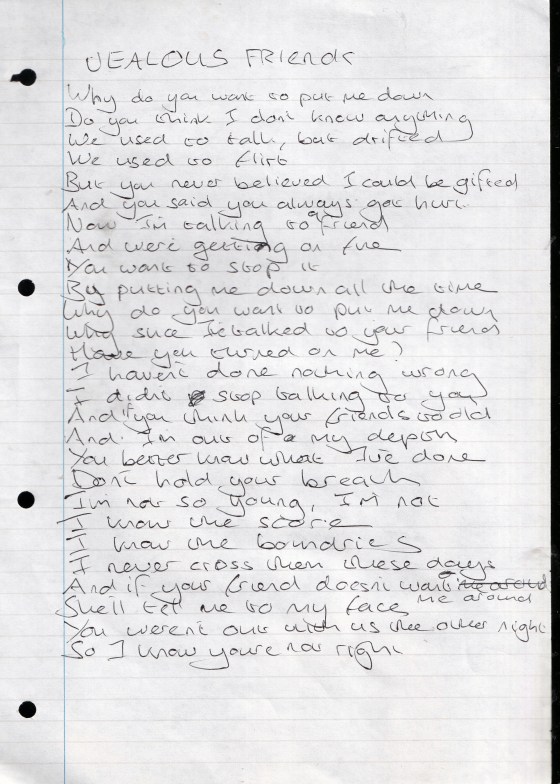 JEALOUS FRIENDS
Why do you want to put me down
Do you think I don't know anything
We used to talk, but drifted
We used to flirt
But you never believed I could be gifted
And you said you always got hurt
Now I'm talking to a friend
And we're getting on fine
You want to stop it
By putting me down all the time
Why do you want to put me down
Why since I've talked to your friend
Have you turned on me?
I haven't done nothing wrong
I didn't stop talking to you
And if you think your friends to old
And. I'm out of my depth
You better know what I've done
Don't hold your breath
I'm not so young, I'm not
I know the score
I know the boundries
I never cross them these days
And if your friend doesn't want me around
She'll tell me to my face
You weren't out with us the other night
So I know you're not right